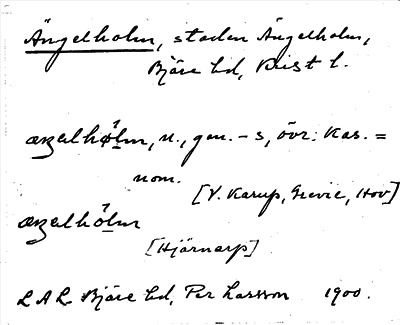 Ängelholm, staden Ängelholm,
Bjäre hd, Krist l.
æŋelhølm, n., gen. -s, övr. kas. =
nom.
[V. Karup, Grevie, Hov]
æŋelhólm
[Hjärnarp]
LAL Bjäre hd, Per Larsson 1900.